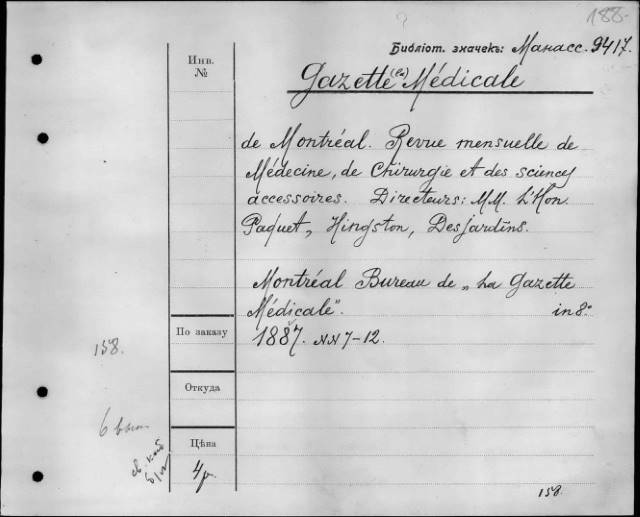 188.
Библіот. значекъ: Манасс. 9417.
Инв.
№
Gazette (La) Médicale
de Montréal. Revue mensuelle de
Médecine, de Chirurgie et des sciences
accessoires. Directeurs: M.M. L'Hon.
Paquet, Hingston, Desjardins.
Montréal Bureau de „La Gazette
Médicale". in 8°
1887. NN 7-12.
По заказу
158.
Откуда
6 вып
Цѣна
4 р.
158.